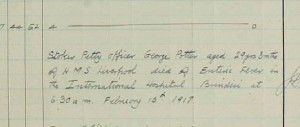 Stoker Petty Officer George Potter aged 29yrs 3mths
of H.M.S Liverpool died of Enteric Fever in
the International Hospital Brindisi at
6.30 a.m. February 13th 1918